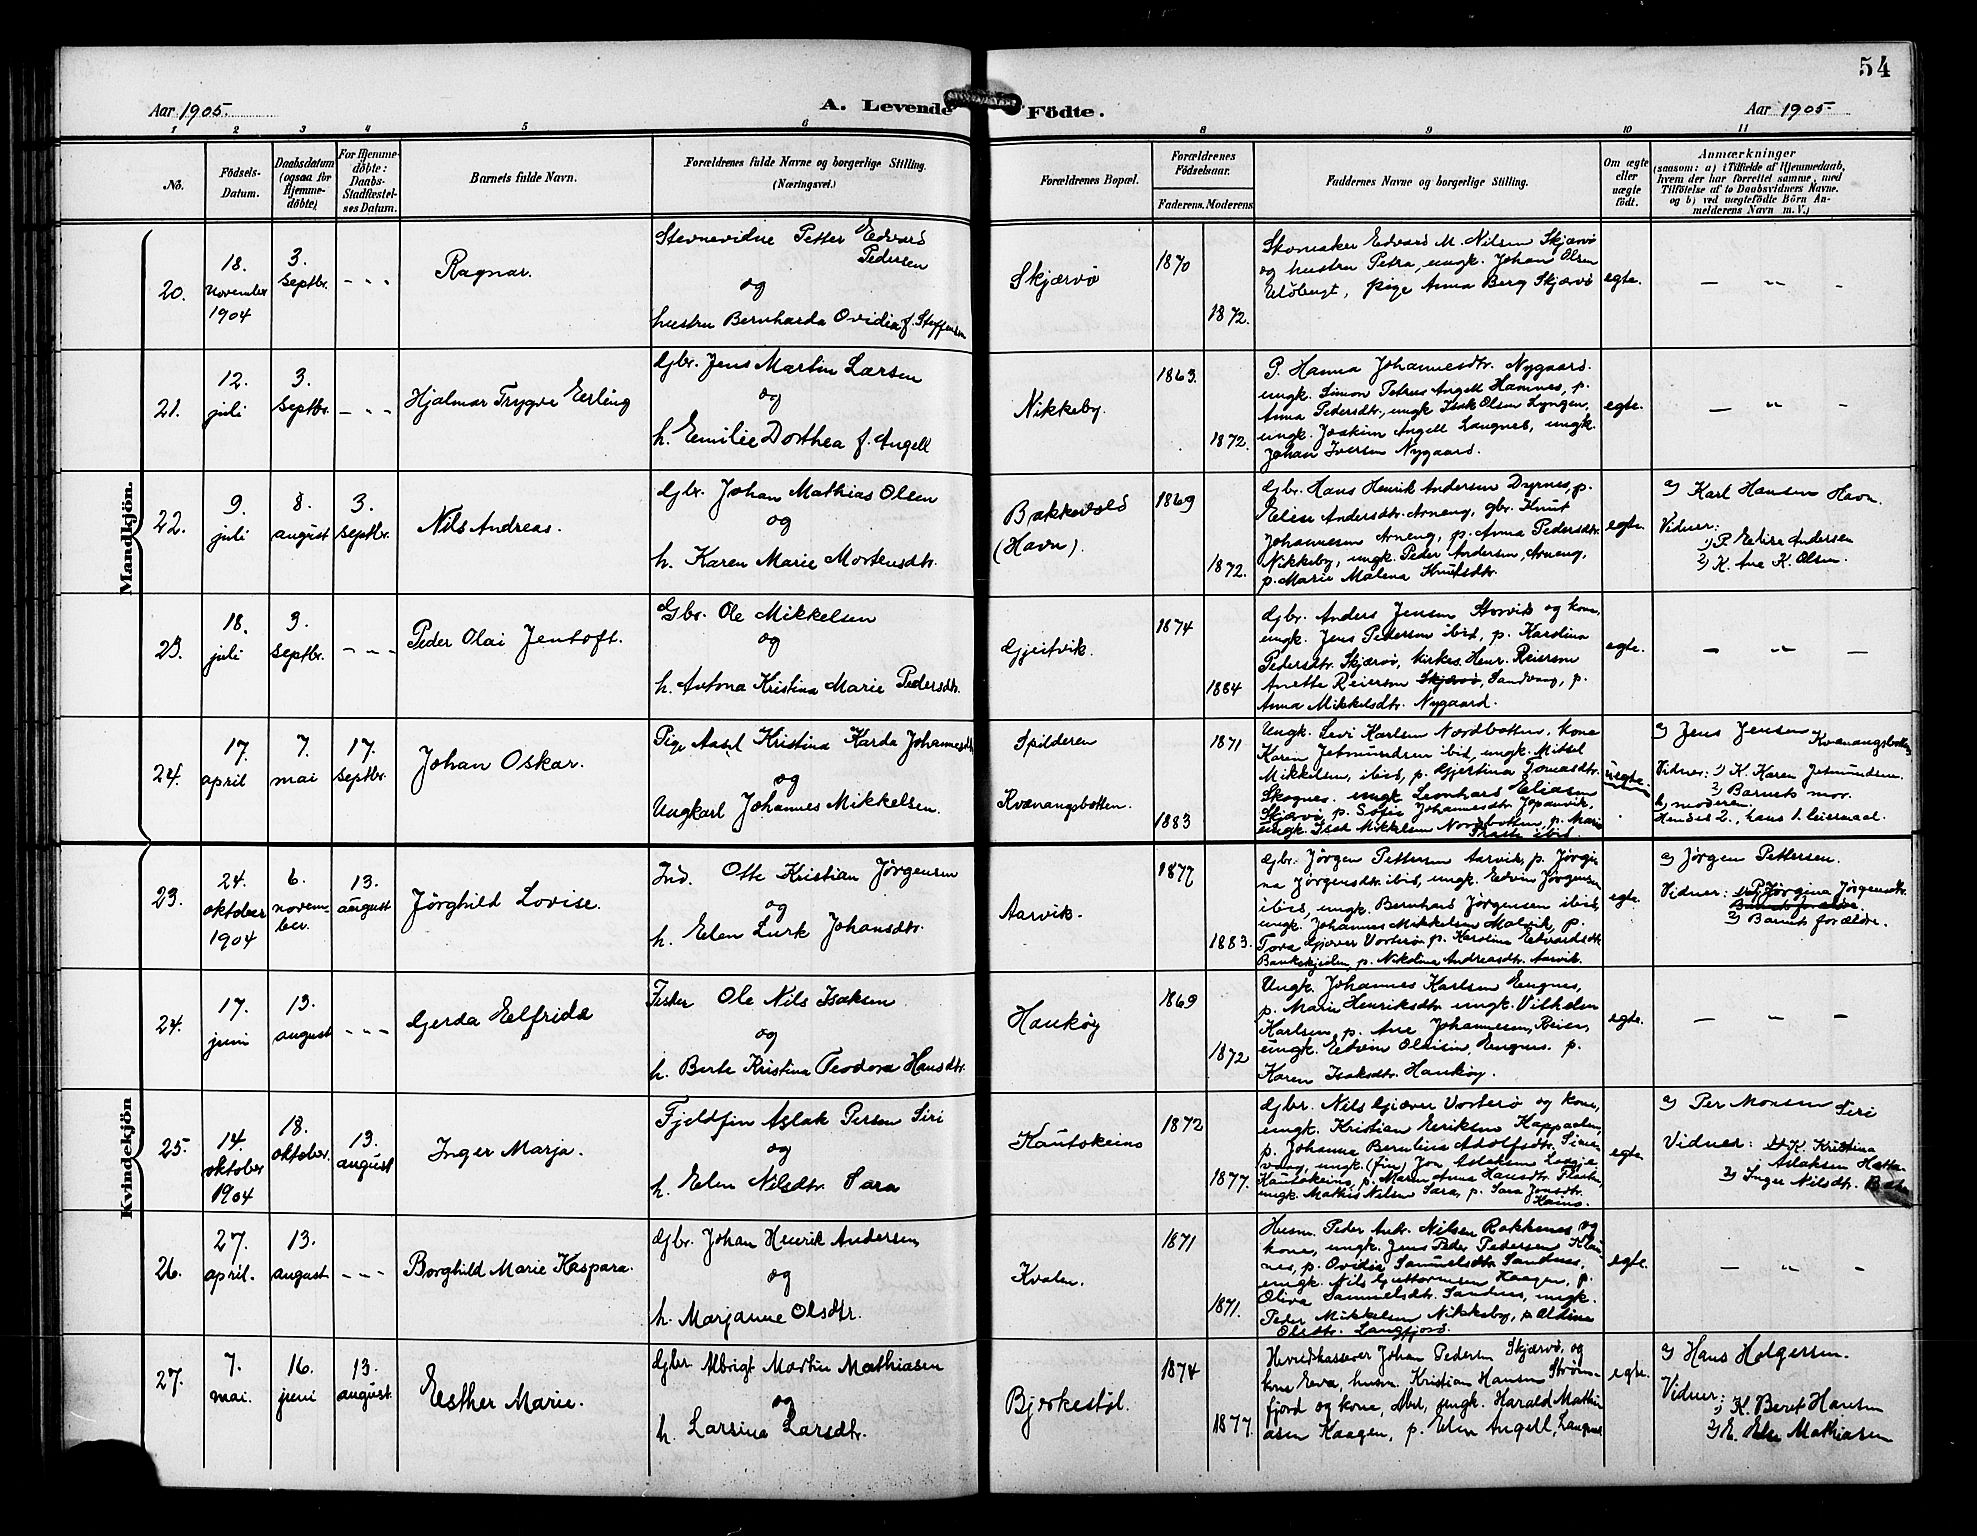 54
Aar 1905.
A. Levende Födte.
Aar 1905.
1 2 3 4 5 6 8 9 10 11
No.
Födsels-Datum.
Daabsdatum (ogsaa for Hjemme-döbte).
For Hjemme-döbte: Daabs-Stadfæstel-ses Datum.
Barnets fulde Navn.
Forældrenes fulde Navne og borgerlige Stilling.
(Næringsvei.)
Forældrenes Bopæl.
Forældrenes Födselsaar.
Faderens. Moderens.
Faddernes Navne og borgerlige Stilling.
Om ægte eller uægte födt.
Anmærkninger
(saasom: a) i Tilfælde af Hjemmedaab,
hvem der har forrettet samme, med
Tilföielse af to Daabsvidners Navne.
og b) ved uægtefödte Börn An-
melderens Navn m. V.)
Mandkjön.
20.
18. november 1904
3. septbr.
- - -
Ragnar.
Stevnevidne Petter Edvard
Pedersen
og
hustru Bernharda Ovidia f. Steffensen
Skjærvö
1870
1872.
Skomaker Edvard M. Nilsen Skjærvö
og hustru Petra, ungk. Johan Olsen
Ulöbugt, pige Anna Berg Skjærvö
egte.
— " -
21.
12. juli
3. septbr.
- - -
Hjalmar Trygve Erling
Gbr. Jens Martin Larsen
og
h. Emilie Dorthea f. Angell
Nikkeby.
1863.
1872.
P. Hanna Johannesdtr. Nygaard.
ungk. Simon Petrus Angell Hamnes, p.
Anna Pedersdtr., ungk Isak Olsen Lyngen,
ungk. Joakim Angell Langnes, ungk.
Johan Iversen Nygaard.
egte.
— " -
22.
9. juli
8. august
3. septbr.
Nils Andreas.
Gbr. Johan Mathias Olsen
og
h. Karen Marie Mortensdtr.
Bakkevold
(Havn).
1869
1872.
Gbr. Hans Henrik Andersen Dyrnes, p.
Elise Andersdtr. Arneng, gbr. Knut
Johannesen Arneng, p. Anna Pedersdtr.
Nikkeby, ungk. Peder Andersen, Arneng,
p. Marie Malena Knutsdtr.
egte.
a) Karl Hansen Havn.
Vidner:
1) P. Elise Andersen
2) K. Ane K. Olsen.
23.
18. juli
3. septbr.
- - -
Peder Olai Jentoft.
Gbr. Ole Mikkelsen
og
h. Antona Kristina Marie Pedersdtr.
Gjeitvik.
1874
1884
Gbr. Anders Jensen Storvik og kone,
ungk. Jens Pedersen ibid, p. Karolina
Pedersdtr. Skjærvö, kirkes. Henr. Reiersen
Anette Reiersen Skjærvö, Sandvaag, p.
Anna Mikkelsdtr. Nygaard.
egte.
— " —
24.
17. april
7. mai
17. septbr.
Johan Oskar.
Pige Aasel Kristina Karda Johannesdtr.
og
Ungkarl Johannes Mikkelsen.
Spilderen
Kvænangsbotten.
1871
1883
Ungk. Levi Karlsen Nordbotten, kone
Karen Jetmundsen ibid, ungk. Mittel
Mikkelsen, ibid, p. Gjertina Tomasdtr.
Skognes. ungk Leonhard Eliasen
Skjærvö, p. Sofie Johannesdtr.
ungk. Isak Mikkelsen Nordbotten, p. Marie
ibid.
uegte.
a) Jens Jensen
Kvænangsbotten
Vidner: 1) K. Karen Jetmundsen.
2) Barnets mor.
b) moderen.
Hendes 2., hans 1. leiermaal.
Kvindekjön
23.
24. oktober 1904
6. novem-ber.
13. august
Jörghild Lovise.
Ind. Otto Kristian Jörgensen
og
h. Elen Lurk Johansdtr.
Aarvik.
1877
1883.
Gbr. Jörgen Pettersen Aarvik, p. Jörgi-
na Jörgensdtr. ibid, ungk. Edvin Jörgensen
ibid, ungk. Bernhard Jörgensen ibid,
ungk. Johannes Mikkelsen Malvik, P
Tora Gjæver Vorterö, p. Karolina Edvardsdtr.
p. Nikolina Andreasdtr. Aarvik.
egte.
a) Jörgen Pettersen.
Vidner: 1) P. Jörgina Jörgensdtr.
2) Barnets forældre.
24.
17. juni
13. august
- - -
Gerda Elfrida
Fisker Ole Nils Isaksen
og
h. Berte Kristina Teodora Hansdtr.
Haukøy
1869
1872
Ungk. Johannes Karlsen Engnes,
p. Marie Henriksdtr. ungk. Vilhelm
Karlsen, p. Ane Johannesen, Reier,
ungk. Edvin Olaisen, Engnes. p.
Karen Isaksdtr. Haukøy.
egte.
— " —
25.
14. oktober 1904
18. oktober.
13. august
Inger Marja.
Fjeldfin Aslak Persen Siri
og
h. Elen Nilsdtr. Sara
Kautokeino
1872
1877.
Gbr. Nils Gjæver Vorterö og kone,
ungk. Kristian Eriksen Kappelen,
p. Johanna Bernlius Adolfsdtr.
ungk. (fin) Jon Aslaksen
Kautokeino, p. Maren Anna Hansdtr. Flaaten,
ungk. Mathis Nilsen Sara, p. Sara Jonsdtr.
egte.
a) Per Monsen Siri
Vidner: 1) K. Kristina
Aslaksen Hætta
2) Inger Nilsdtr.
26.
27. april.
13. august
- - -
Borghild Marie Kaspara.
Gbr. Johan Henrik Andersen
og
h. Marjanne Olsdtr.
Kvalen.
1871
1871.
Husm. Peder Andr. Nilsen Rakkenes og
kone, ungk. Jens Peder Pedersen Klau-
nes, p. Ovidia Samuelsdtr. Sandnes,
ungk. Nils Guttormsen Kaagen, p.
Oliva Samuelsdtr. Sandnes, ungk.
Peder Mikkelsen Nikkeby, p. Aldina
Olsdtr. Langfjord.
egte.
— " -
27.
7. mai.
16. juni
13. august.
Esther Marie.
Gbr Albrigt Martin Mathiasen
og
h. Larsina Larsdtr.
Bjerkestøl.
1874
1877.
Herredkasserer Johan Pedersen Skjærvö, og
kone Eva, husm. Kristian Hansen Ström-
fjord og kone, Abel, ungk. Harald Mathi-
asen Kaagen, p. Elen Angell, Langnes
egte.
a) Hans Holgersen.
Vidner:
1) K. Beret Hansen
2) E. Else Mathiasen